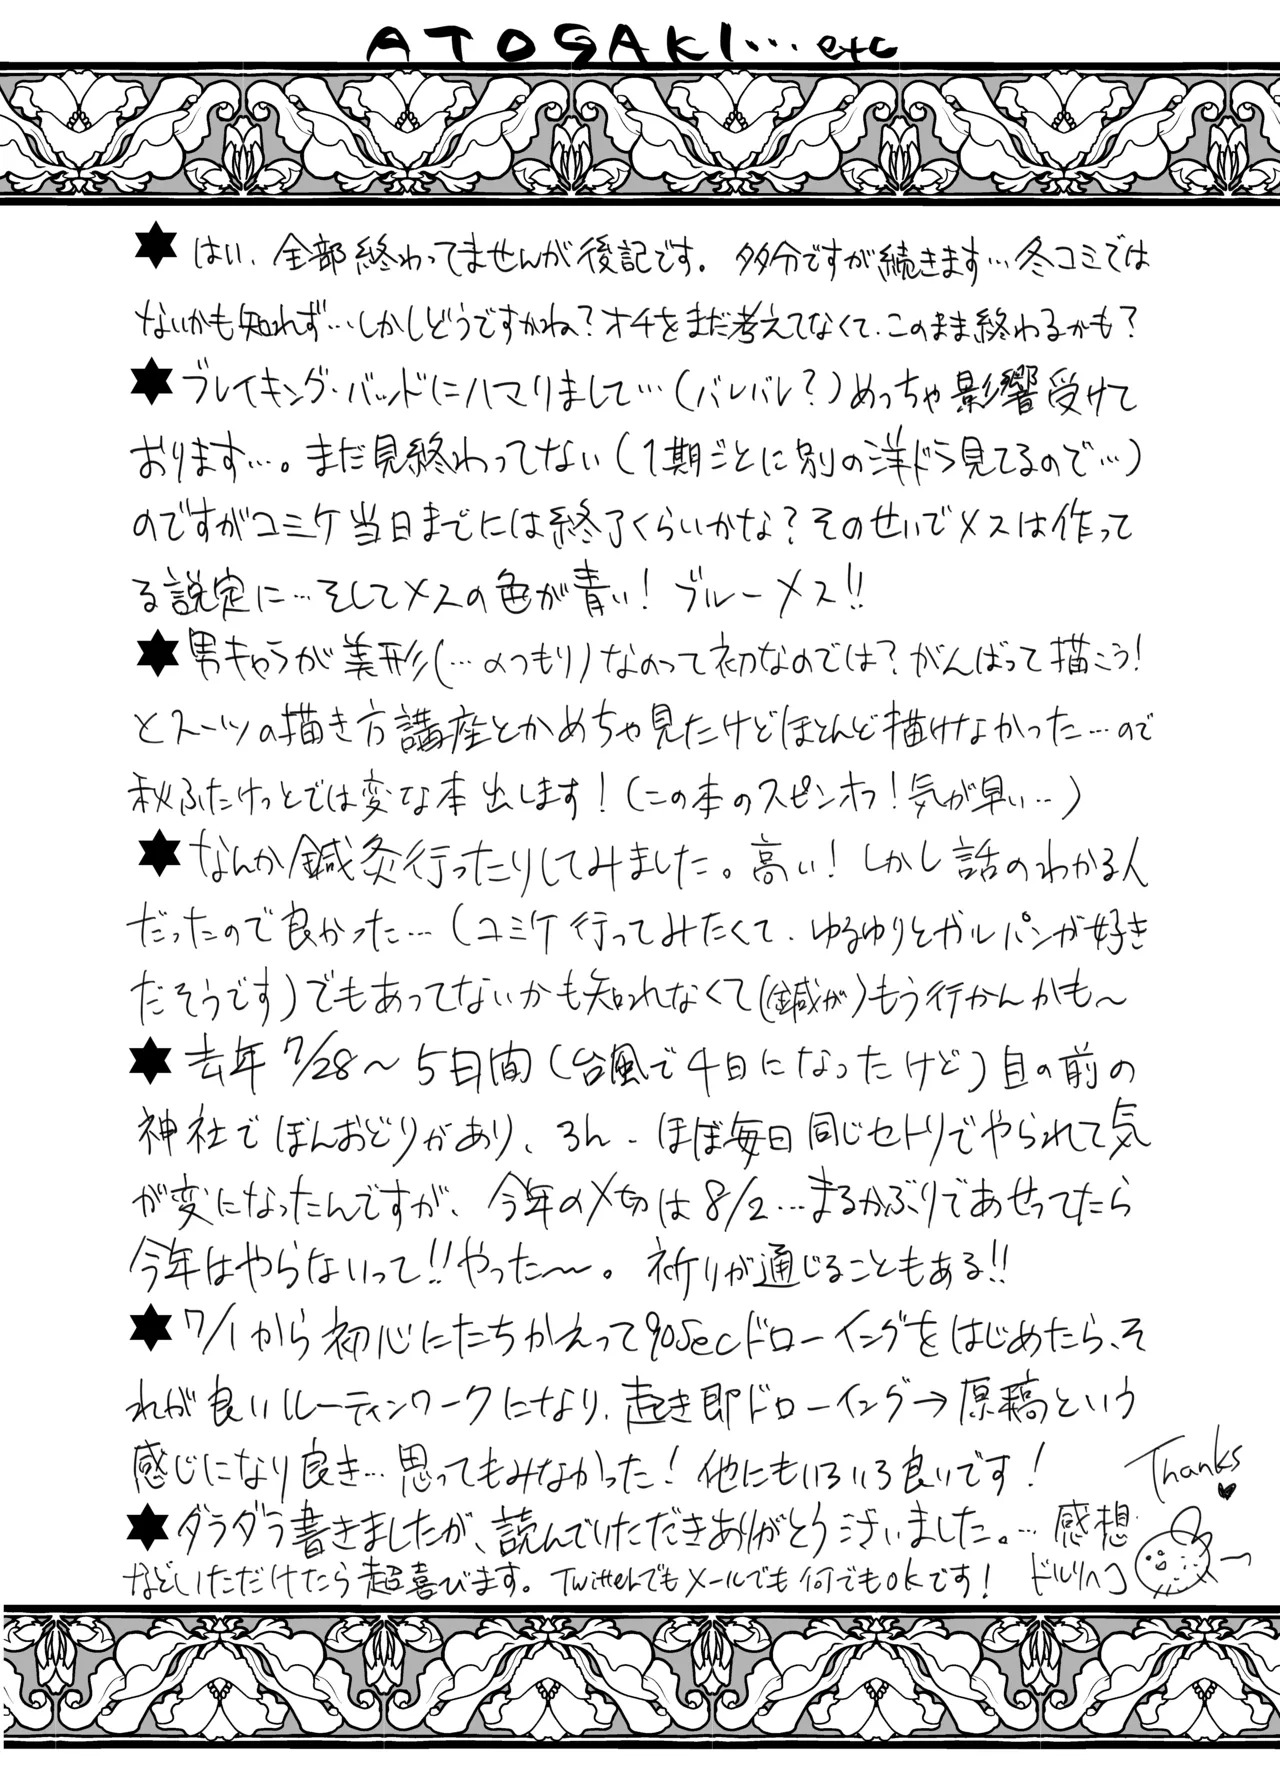 ATOGAKI…etc
★はい、全部終わってませんが後記です。多分ですが続きます…冬コミでは
ないかも知れず…しかしどうですかね？オチをまだ考えてなくて、このまま終わるかも？
★ブレイキング・バッドにハマりまして…（バレバレ？）めっちゃ影響受けて
おります…。まだ見終わってない（1期ごとに別の洋ドラ見てるので…）
のですがコミケ当日までには終了くらいかな？そのせいでメスは作って
る設定に…そしてメスの色が青い！ブルーメス!!
★男キャラが美形（…のつもり）なのって初なのでは？がんばって描こう！
とスーツの描き方講座とかめちゃ見たけどほとんど描けなかった…ので
秋ふたけっとでは変な本出します！（この本のスピンオフ！気が早い…）
★なんか鍼灸行ったりしてみました。高い！しかし話のわかる人
だったので良かった…（コミケ行ってみたくて、ゆるゆりとガルパンが好き
だそうです）でもあってないかも知れなくて（鍼が）もう行かんかも〜
★去年7/28〜5日間（台風で4日になったけど）目の前の
神社でぼんおどりがあり、ろん、ほぼ毎日同じセトリでやられて気
が変になったんですが、今年の〆切は8/2…まるかぶりであせってたら
今年はやらないって!!やった〜〜。祈りが通じることもある!!
★7/1から初心にたちかえって90secドローイングをはじめたら、そ
れが良いルーティンワークになり、起き即ドローイング→原稿という
感じになり良き…思ってもみなかった！他にもいろいろ良いです！
★ダラダラ書きましたが、読んでいただきありがとうございました。…感想
などいただけたら超喜びます。Twitterでもメールでも何でもOKです！
Thanks
ドルリヘコ